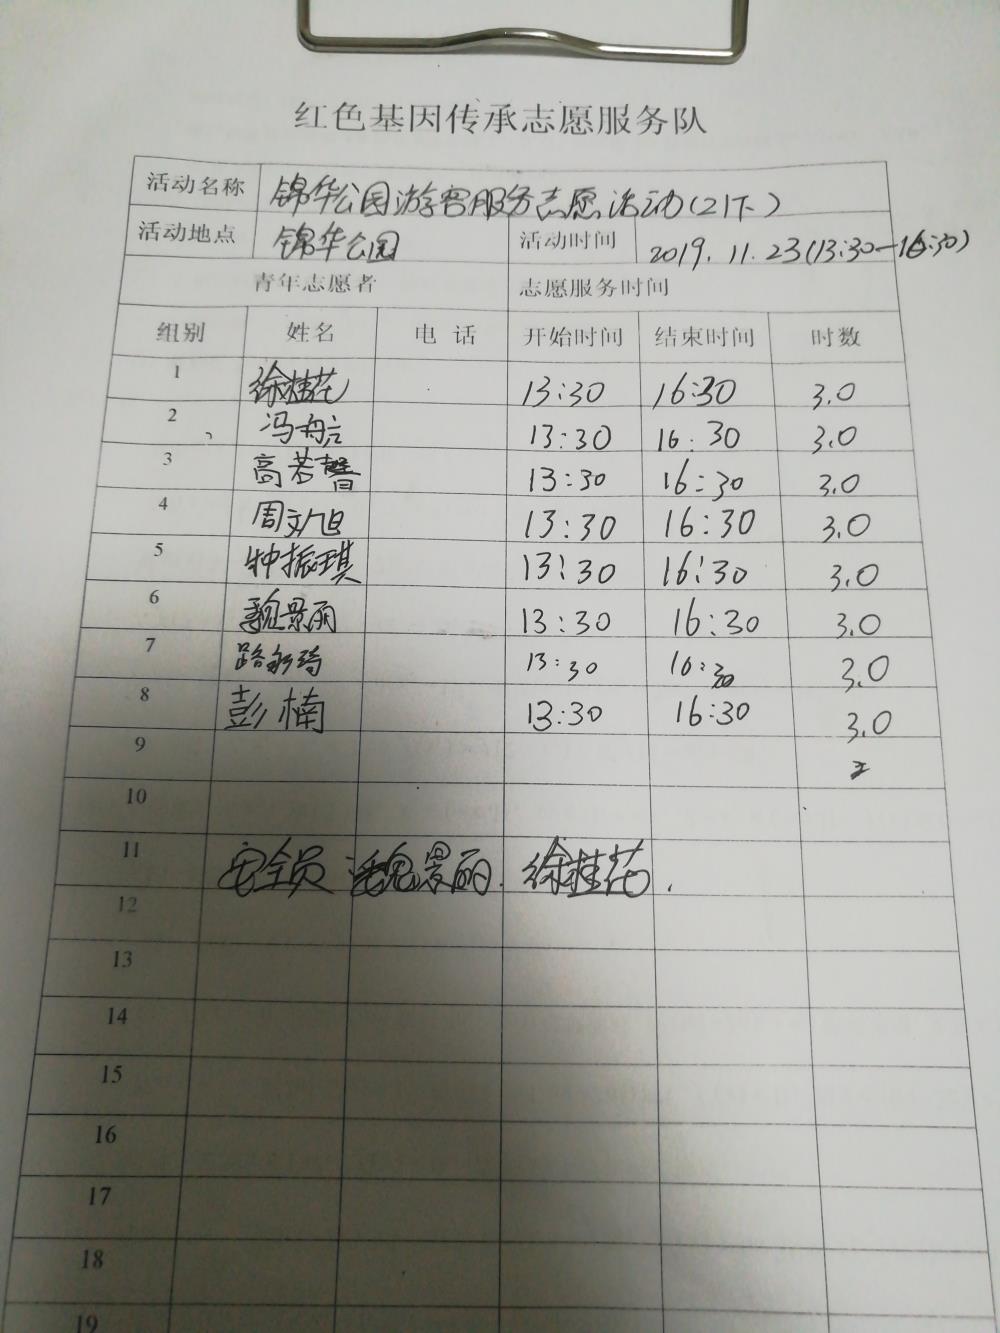 红色基因传承志愿服务队
活动名称 锦华公园游客服务志愿活动(21下)
活动地点 锦华公园 活动时间 2019.11.23(13:30-16:30)
青年志愿者 志愿服务时间
组别 姓名 电话 开始时间 结束时间 时数
1 徐桂花 13:30 16:30 3.0
2 冯 13:30 16:30 3.0
3 高若馨 13:30 16:30 3.0
4 周文旭 13:30 16:30 3.0
5 钟振琪 13:30 16:30 3.0
6 魏景丽 13:30 16:30 3.0
7 路 琦 13:30 16:30 3.0
8 彭楠 13:30 16:30 3.0
9
10
11 安全员 魏景丽 徐桂花.
12
13
14
15
16
17
18
19